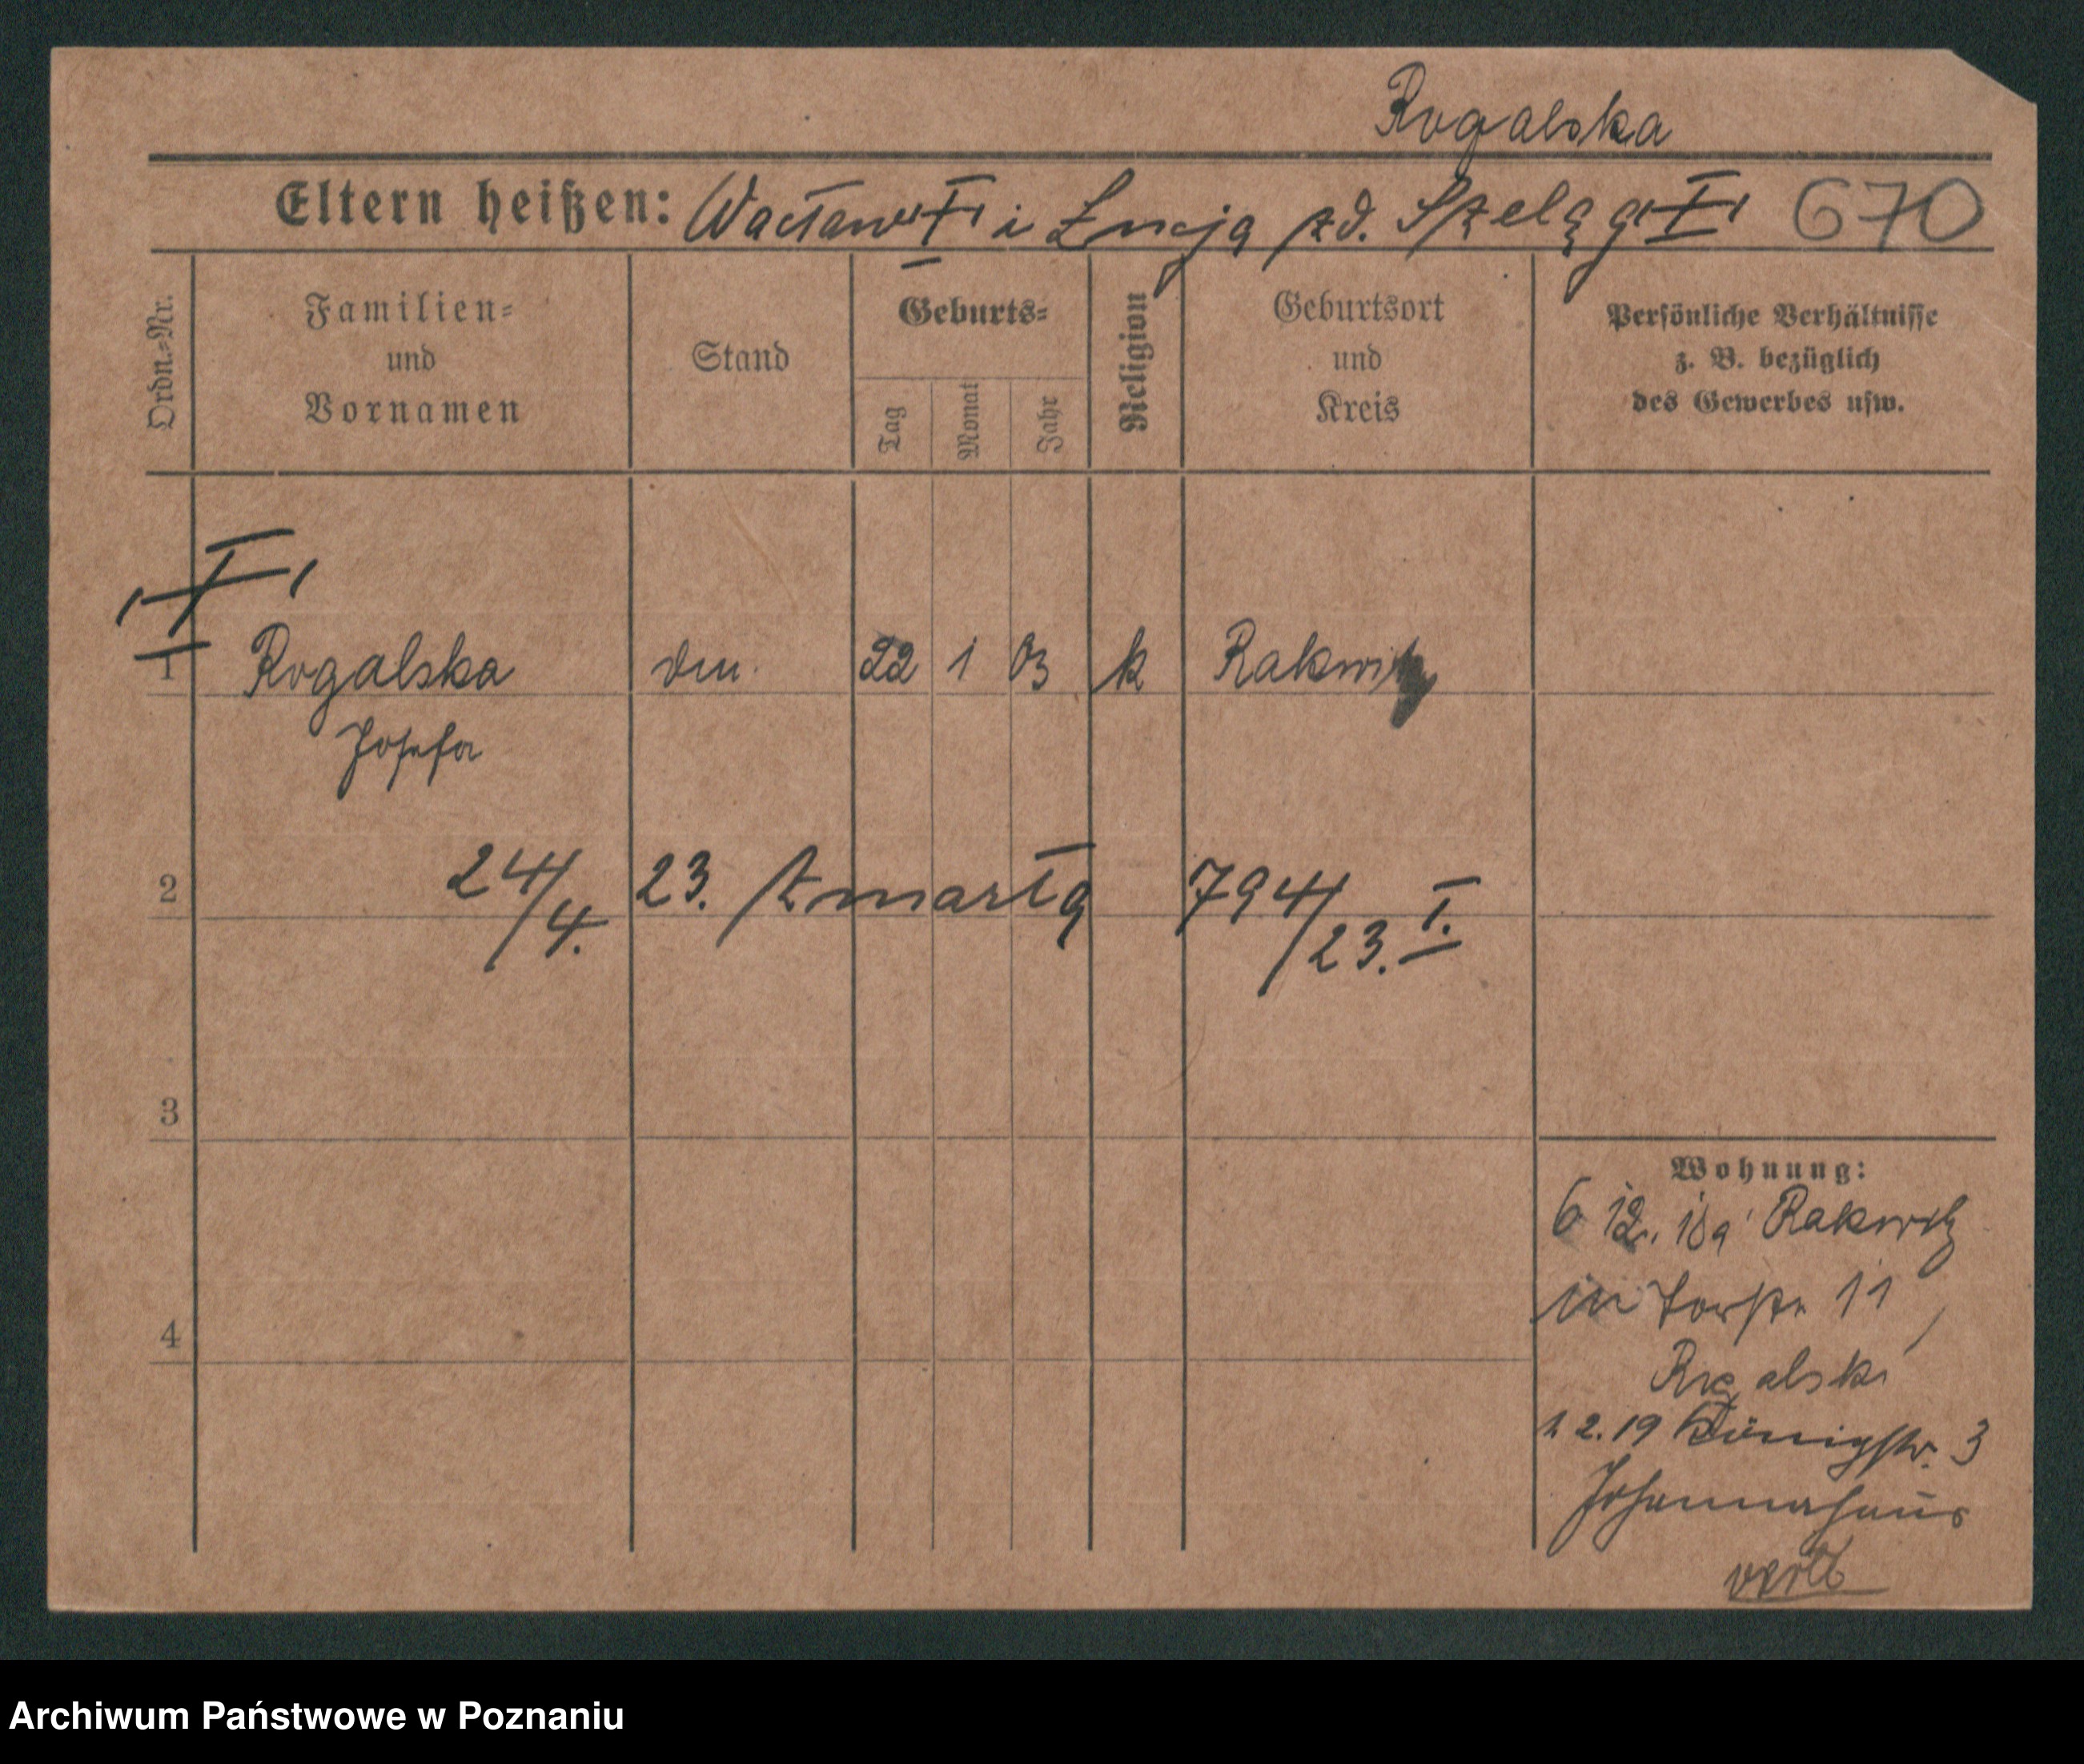 Rogalska
Eltern heißen: Wacław i Łucja zd. Szeląg 670
Ordn.-Nr.
Familien=
und
Vornamen
Stand
Geburts=
Tag
Monat
Jahr
Religion
Geburtsort
und
Kreis
Persönliche Verhältnisse
z. B. bezüglich
des Gewerbes usw.
1 Rogalska 22 1 03 k Rakwitz
Josefa
2 24/4. 23. zmarła 794/23. I.
3
4
Wohnung:
6 12. 18 Rakwitz
in Torstr 11
Rogalski
1 2. 19 Königstr. 3
Johannahaus